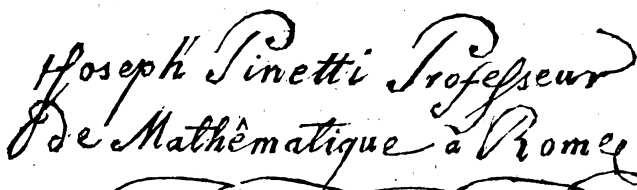 Joseph Pinetti Professeur
de Mathêmatique à Rome